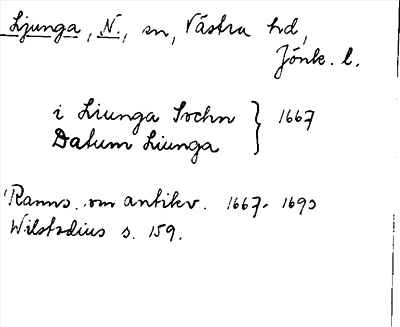 Ljunga, N., sn, Västra hd,
Jönk. l.
i Liunga Sochn } 1667
Datum Liunga
Ranns. om antikv. 1667-1693
Wilstadius s. 159.